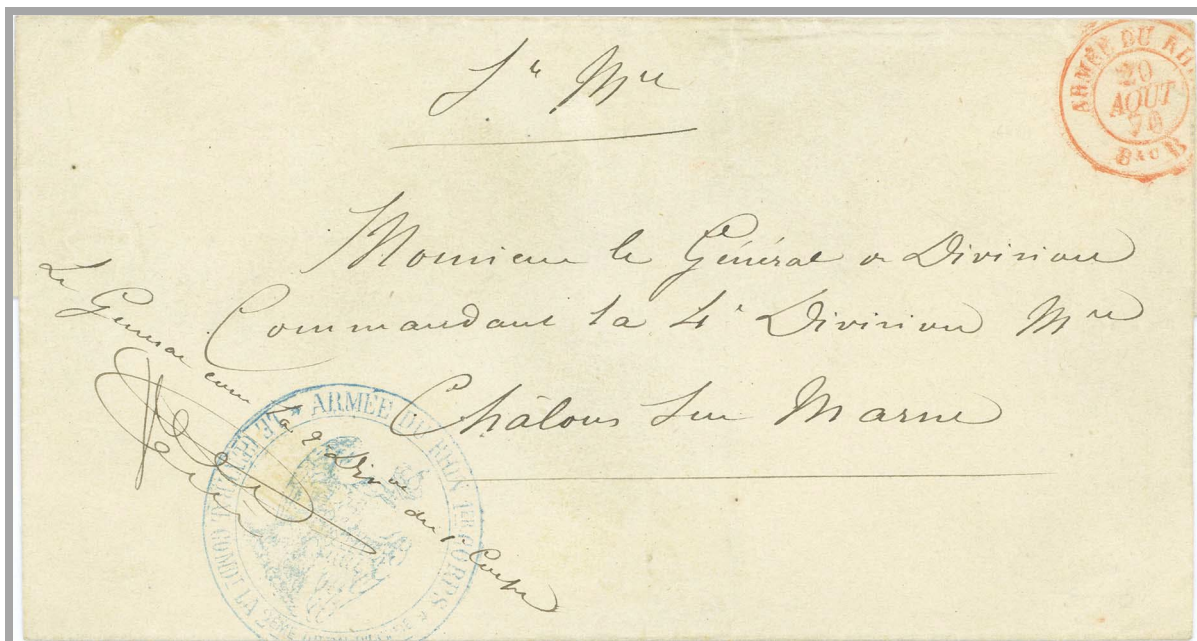 Sce Mre
ARMÉE DU RHIN
20
AOUT
70
BAU B
Monsieur le Général de Division
Commandant la 4e Division Mre
Châlons sur Marne
Le Général comt la 2e Divon du 1er Corps
ARMÉE DU RHIN 1ER CORPS
LE GÉNÉRAL COMDT LA 2ÈME